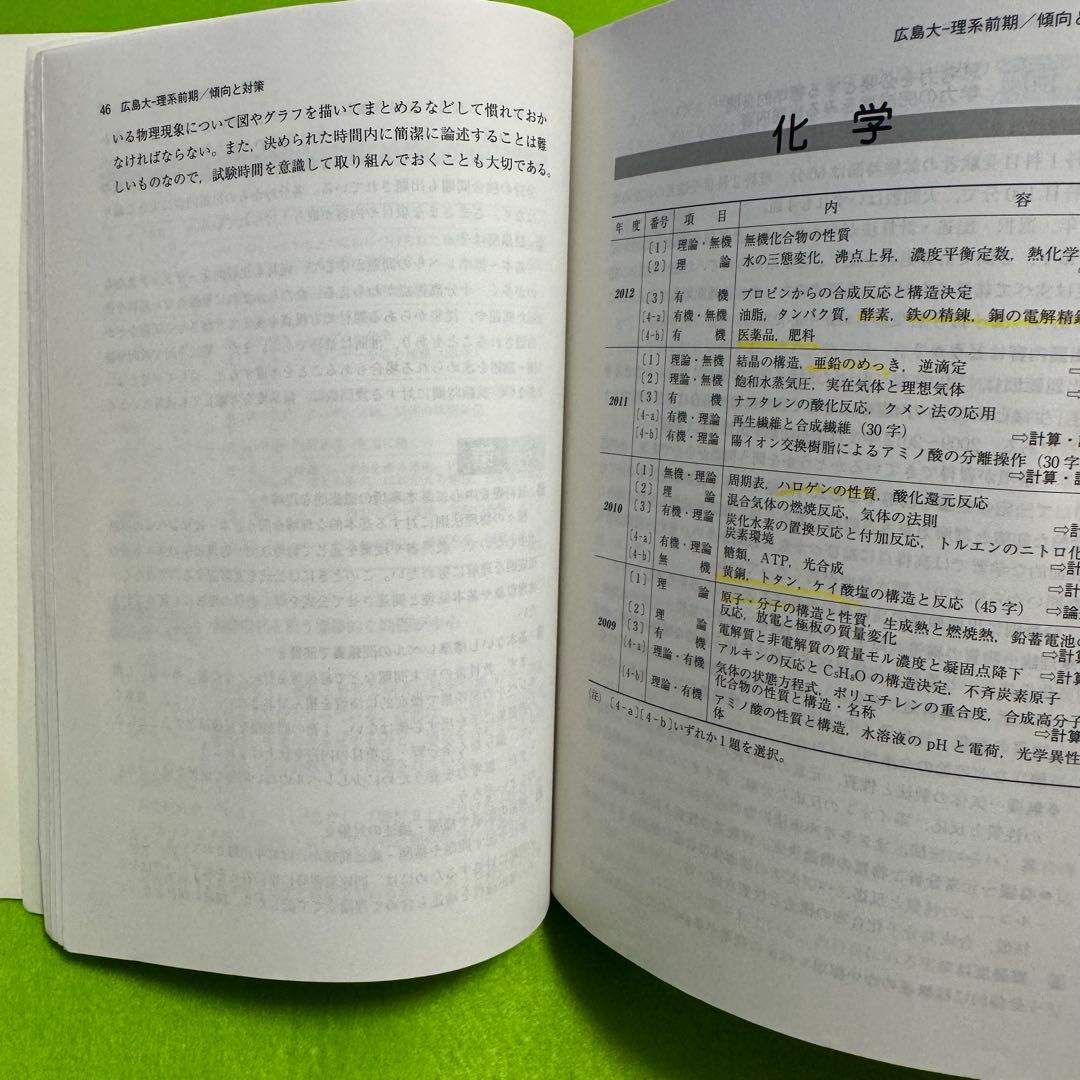 46 広島大-理系前期/傾向と対策
いる物理現象について図やグラフを描いてまとめるなどして慣れておか
なければならない。また、決められた時間内に簡潔に論述することは難
しいものなので、試験時間を意識して取り組んでおくことも大切である。
広島大-理系前期/傾向と
化 学
年 度 番号 項 目 内 容
2012 〔1〕 理論・無機 無機化合物の性質
〔2〕 理 論 水の三態変化, 沸点上昇, 濃度平衡定数, 熱化学
〔3〕 有 機 プロピンからの合成反応と構造決定
〔4-a〕 有機・無機 油脂, タンパク質, 酵素, 鉄の精錬, 銅の電解精錬
〔4-b〕 有 機 医薬品, 肥料
2011 〔1〕 理論・無機 結晶の構造, 亜鉛のめっき, 逆滴定
〔2〕 理論・無機 飽和水蒸気圧, 実在気体と理想気体
〔3〕 有 機 ナフタレンの酸化反応, クメン法の応用
〔4-a〕 有機・理論 再生繊維と合成繊維 (30字) ⇨計算・
〔4-b〕 有機・理論 陽イオン交換樹脂によるアミノ酸の分離操作 (30字
⇨計算・
2010 〔1〕 無機・理論 周期表, ハロゲンの性質, 酸化還元反応
〔2〕 理 論 混合気体の燃焼反応, 気体の法則 ⇨計
〔3〕 有機・理論 炭化水素の置換反応と付加反応, トルエンのニトロ化
炭素環境 ⇨計算
〔4-a〕 有機・理論 糖類, ATP, 光合成 ⇨計
〔4-b〕 無 機 黄銅, トタン, ケイ酸塩の構造と反応 (45字) ⇨論
2009 〔1〕 理 論 原子・分子の構造と性質, 生成熱と燃焼熱, 鉛蓄電池の
反応, 放電と極板の質量変化 ⇨計算
〔2〕 理 論 電解質と非電解質の質量モル濃度と凝固点降下 ⇨計算
〔3〕 有 機 アルキンの反応と C₅H₈O の構造決定, 不斉炭素原子
〔4-a〕 理論・有機 気体の状態方程式, ポリエチレンの重合度, 合成高分子
化合物の性質と構造・名称 ⇨計算
〔4-b〕 理論・有機 アミノ酸の性質と構造, 水溶液の pH と電荷, 光学異性
体
(注) 〔4-a〕〔4-b〕いずれか1題を選択。